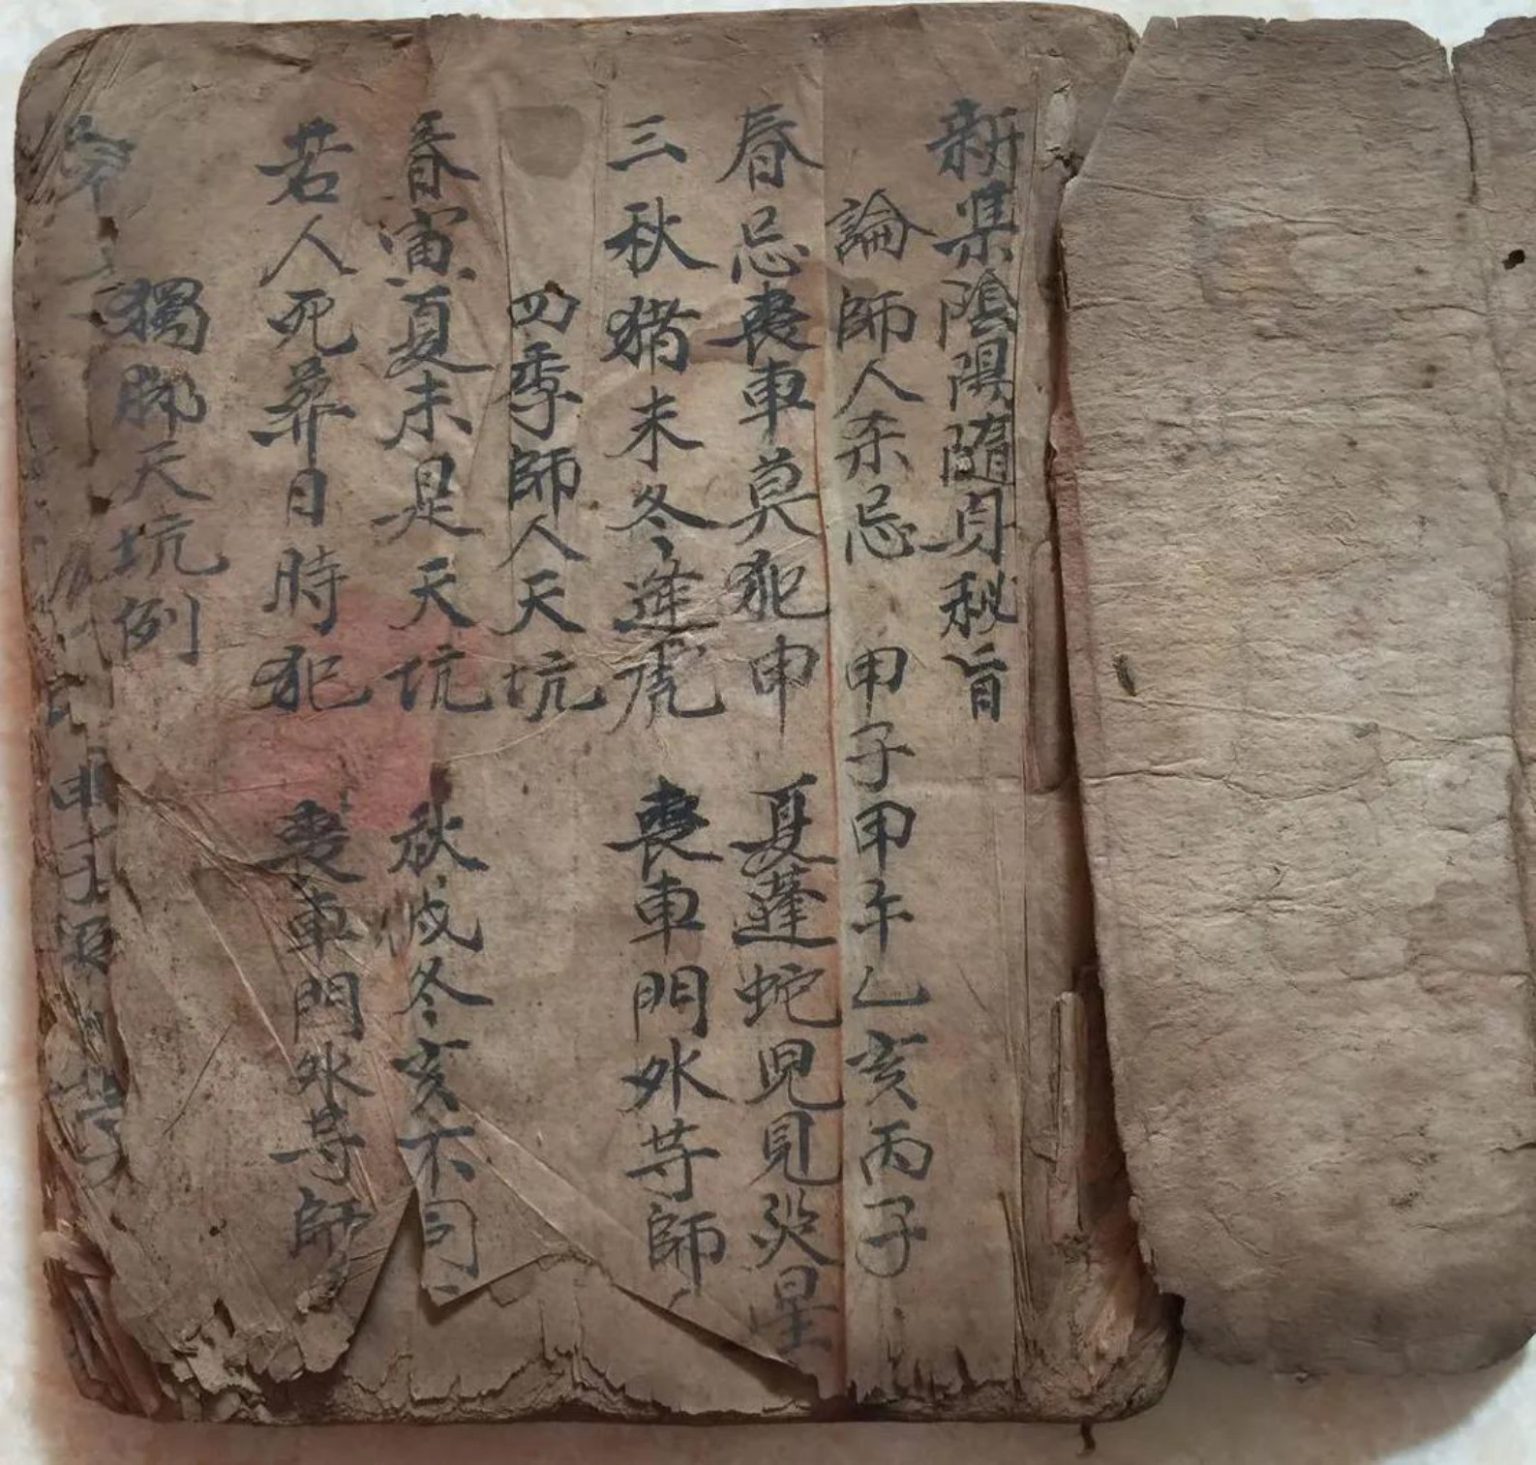 新集陰陽隨身秘旨
論師人杀忌 甲子甲午乙亥丙子
春忌喪車莫犯申 夏蓬蛇児見災星
三秋猪未冬逢虎 喪車門外等師
四季師人天坑
春寅夏未是天坑 秋戌冬亥不司
若人死葬日時犯 喪車門外等師
獨脚天坑例